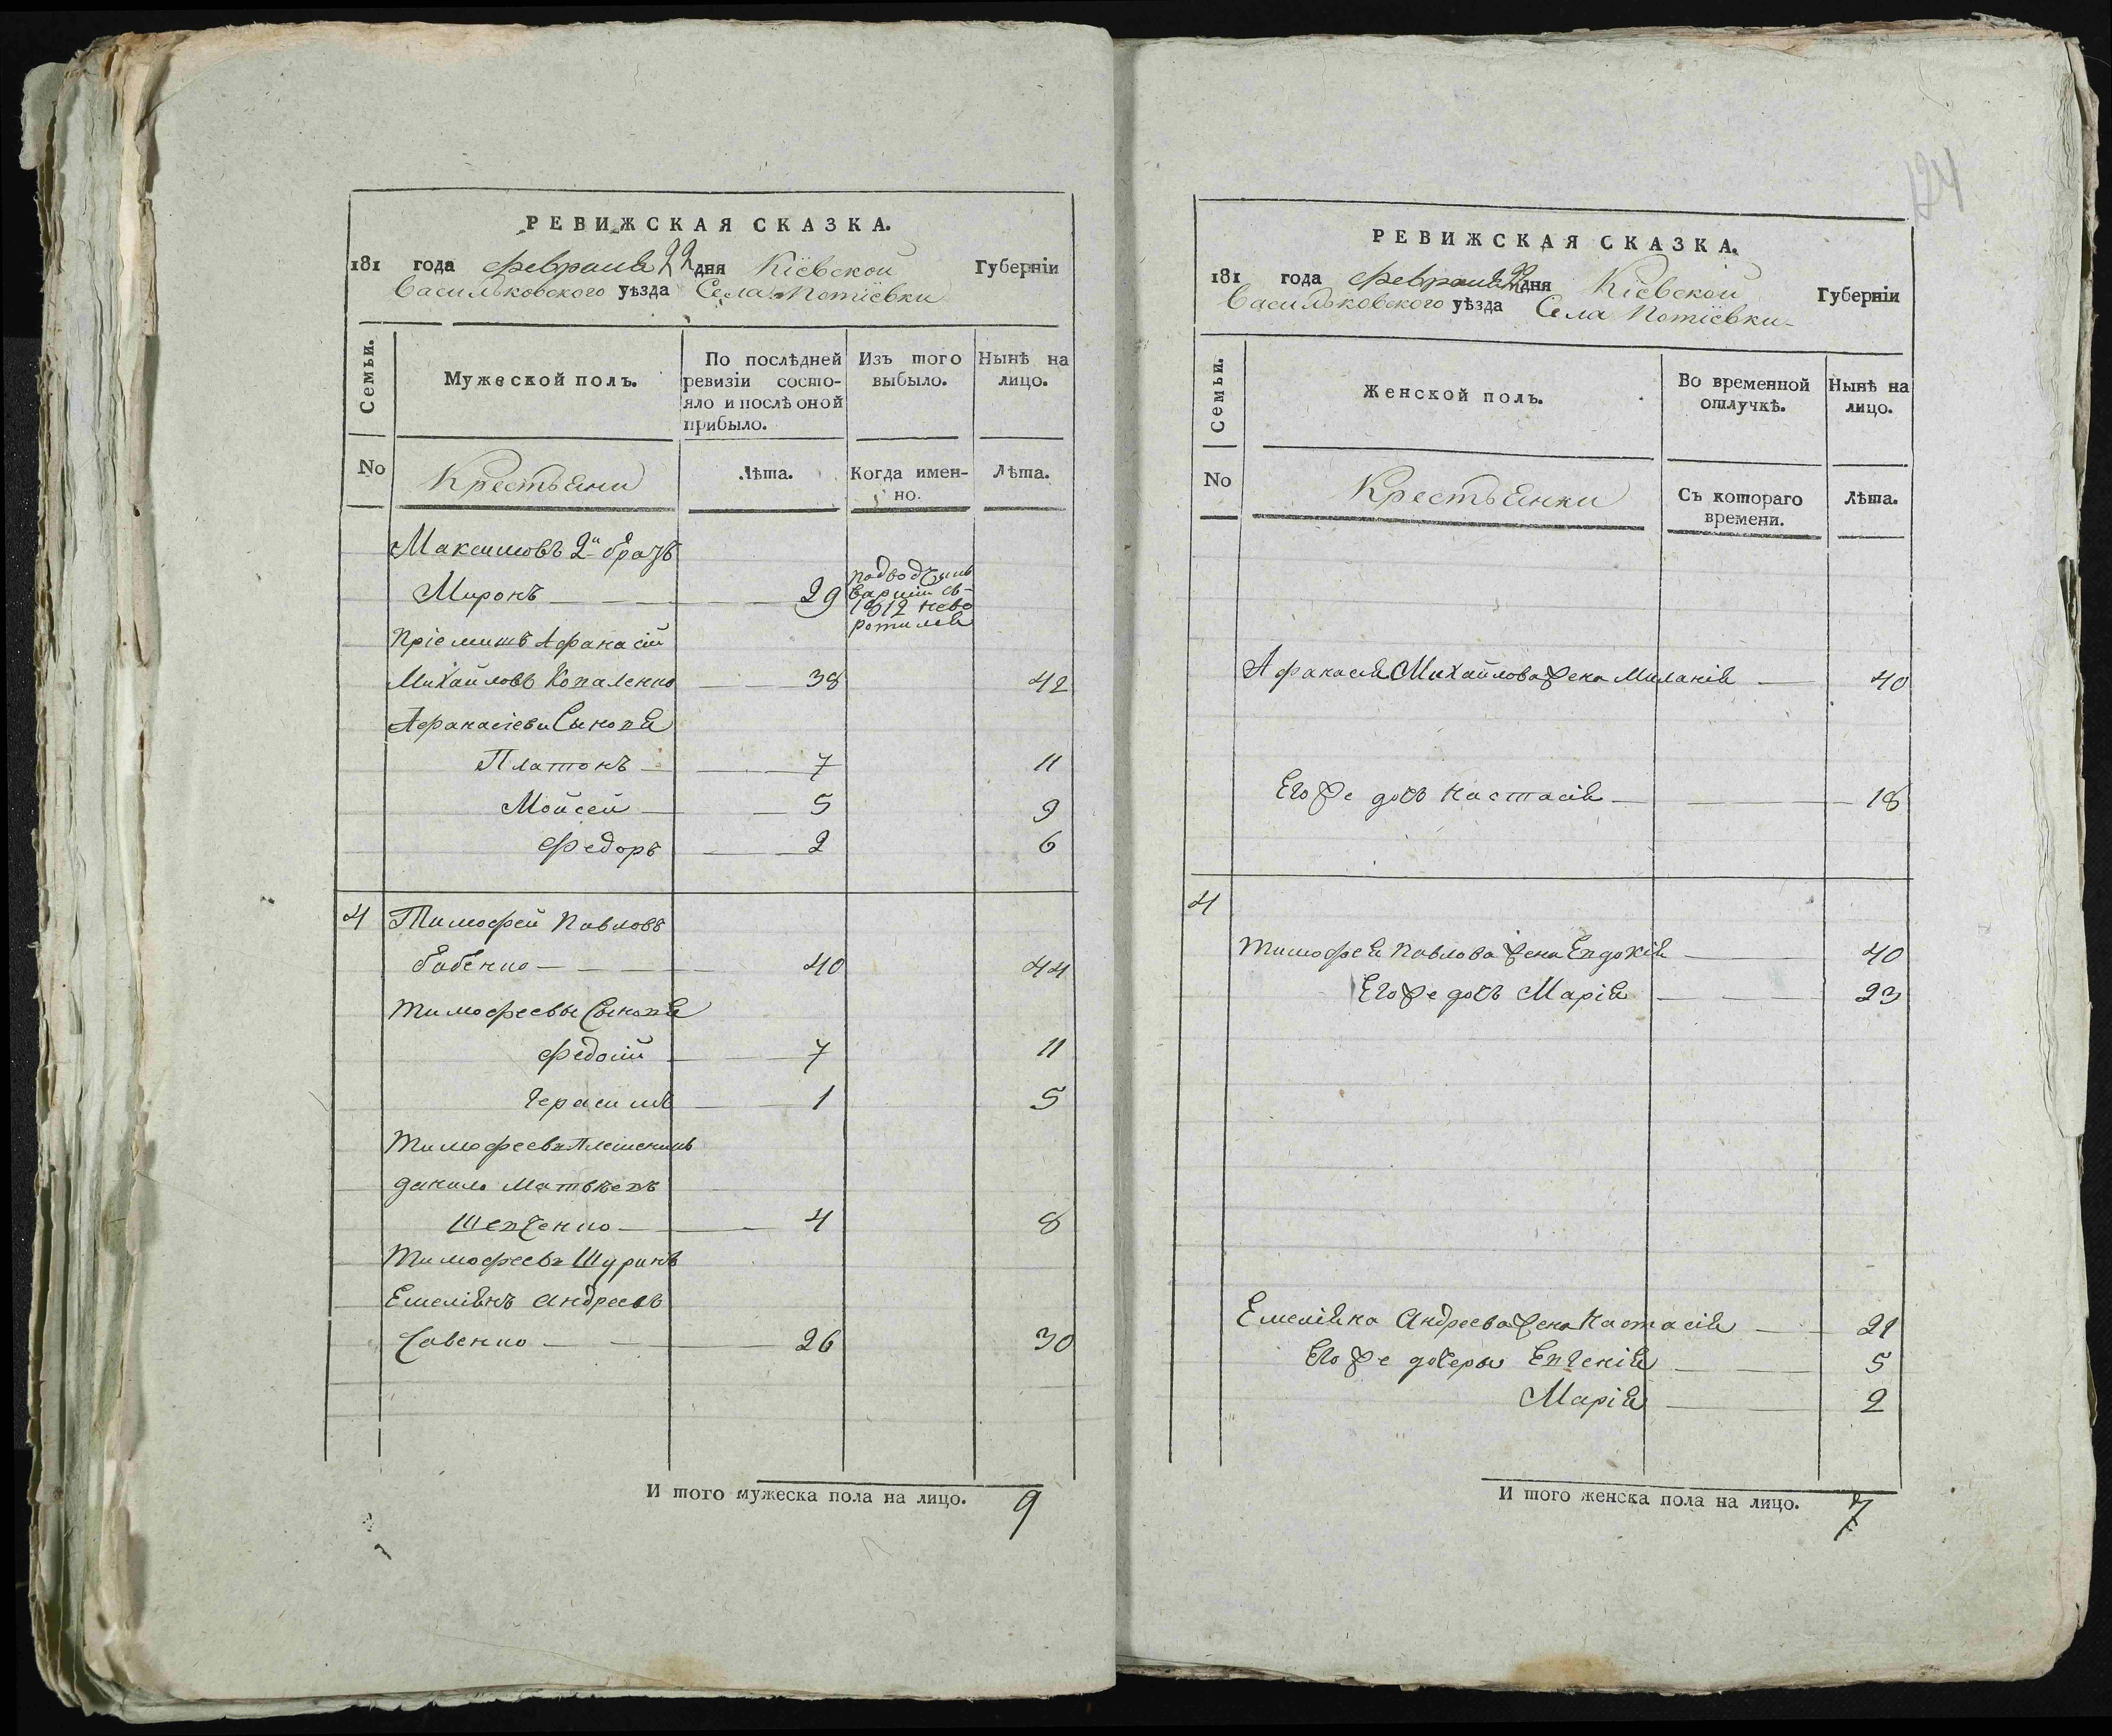 РЕВИЖСКАЯ СКАЗКА.
181 года февраля 22 дня Кіевской Губерніи
Васильковского уѣзда Села Потіевки
Семьи.
Мужеской полъ.
По послѣдней ревизіи состо-
яло и послѣ оной
прибыло.
Изъ того
выбыло.
Нынѣ на
лицо.
No
Крестьяни
Лѣта.
Когда имен-
но.
Лѣта.
Максимовъ 2й братъ
Миронъ 29
въ
1812 нево
ротился
Пріемишъ Афанасій
Михайловъ Коваленко 38 42
Афанасіеви Сыновя
Платонъ 7 11
Мойсей 5 9
Федоръ 2 6
4 Тимофей Павловъ
Бабенко 40 44
Тимофеевы Сыновя
Федосій 7 11
Герасимъ 1 5
Тимофеевъ Племеникъ
Данило Матвѣевъ
Шевченко 4 8
Тимофеевъ Шуринъ
Емеліянъ Андреевъ
Савенко 26 30
И того мужеска пола на лицо. 9
124
РЕВИЖСКАЯ СКАЗКА.
181 года февраля 22 дня Кіевской Губерніи
Васильковского уѣзда Села Потіевки
Семьи.
Женской полъ.
Во временной
отлучкѣ.
Нынѣ на
лицо.
No
Крестьянки
Съ котораго
времени.
Лѣта.
Афанасія Михайлова жена Миланія 40
Его же дочь Настасія 18
4
Тимофея Павлова жена Евдокія 40
Его же дочь Марія 23
Емеліяна Андреева жена Настасія 21
Его же дочеры Евгенія 5
Марія 2
И того женска пола на лицо. 7